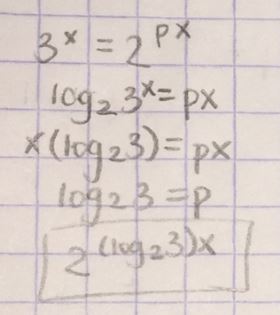 3^x = 2^px
log₂3^x = px
x(log₂3) = px
log₂3 = p
2^(log₂3)x